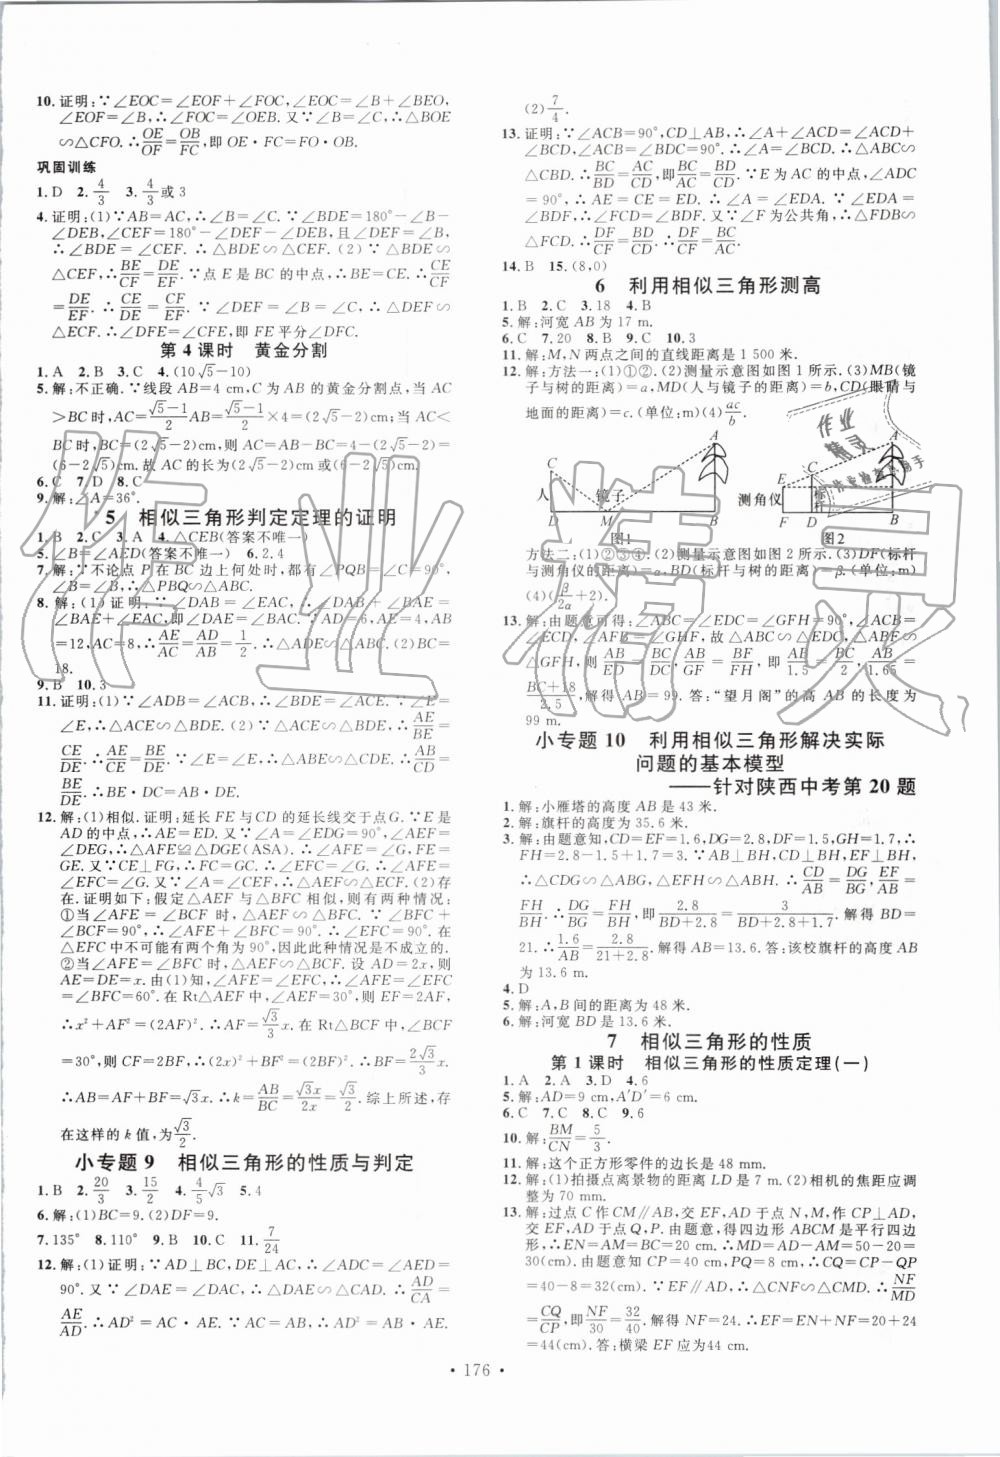 10. 证明:∵∠EOC=∠EOF+∠FOC,∠EOC=∠B+∠BEO,
∠EOF=∠B,∴∠FOC=∠OEB. 又∵∠B=∠C,∴△BOE
∽△CFO. ∴OE/OF=OB/FC,即OE·FC=FO·OB.
巩固训练
1. D 2. 4/3 3. 4/3或3
4. 证明:(1)∵AB=AC,∴∠B=∠C. ∵∠BDE=180°-∠B-
∠DEB,∠CEF=180°-∠DEF-∠DEB,且∠DEF=∠B,
∴∠BDE=∠CEF. ∴△BDE∽△CEF. (2)∵△BDE∽
△CEF,∴BE/CF=DE/EF. ∵点E是BC的中点,∴BE=CE. ∴CE/CF=
DE/EF. ∴CE/DE=CF/EF. ∵∠DEF=∠B=∠C,∴△DEF∽
△ECF. ∴∠DFE=∠CFE,即FE平分∠DFC.
第4课时 黄金分割
1. A 2. B 3. C 4. (10√5-10)
5. 解:不正确. ∵线段AB=4 cm,C为AB的黄金分割点,当AC
>BC时,AC=(√5-1)/2 AB=(√5-1)/2×4=(2√5-2)cm;当AC<
BC时,BC=(2√5-2)cm,则AC=AB-BC=4-(2√5-2)=
(6-2√5)cm. 故AC的长为(2√5-2)cm或(6-2√5)cm.
6. C 7. D 8. C
9. 解:∠A=36°.
5 相似三角形判定定理的证明
1. B 2. C 3. A 4. △CEB(答案不唯一)
5. ∠B=∠AED(答案不唯一) 6. 2.4
7. 解:∵不论点P在BC边上何处时,都有∠PQB=∠C=90°,
∠B=∠B,∴△PBQ∽△ABC.
8. 解:(1)证明:∵∠DAB=∠EAC,∴∠DAB+∠BAE=
∠BAE+∠EAC,即∠DAE=∠BAC. ∵AD=6,AE=4,AB
=12,AC=8,∴AE/AC=AD/AB=1/2. ∴△ADE∽△ABC. (2)BC=
18.
9. B 10. 3
11. 证明:(1)∵∠ADB=∠ACB,∴∠BDE=∠ACE. 又∵∠E
=∠E,∴△ACE∽△BDE. (2)∵△ACE∽△BDE,∴AE/BE=
CE/DE. ∴AE/CE=BE/DE. ∵∠E=∠E,∴△ABE∽△CDE. ∴AB/CD=
BE/DE. ∴BE·DC=AB·DE.
12. 解:(1)相似. 证明:延长FE与CD的延长线交于点G. ∵E是
AD的中点,∴AE=ED. 又∵∠A=∠EDG=90°,∠AEF=
∠DEG,∴△AFE≌△DGE(ASA). ∴∠AFE=∠G,FE=
GE. 又∵CE⊥FG,∴FC=GC. ∴∠EFC=∠G. ∴∠AFE=
∠EFC=∠G. 又∵∠A=∠CEF,∴△AEF∽△ECF. (2)存
在. 证明如下:假定△AEF与△BFC相似,则有两种情况:
①当∠AFE=∠BCF时,∴△AEF∽△FBC. ∵∠BFC+
∠BCF=90°,∴∠AFE+∠BFC=90°. ∴∠EFC=90°. 在
△EFC中不可能有两个角为90°,因此此种情况是不成立的.
②当∠AFE=∠BFC时,△AEF∽△BCF. 设AD=2x,则
AE=DE=x. 由(1)知,∠AFE=∠EFC,∴∠AFE=∠EFC
=∠BFC=60°. 在Rt△AEF中,∠AEF=30°,则EF=2AF,
∴x²+AF²=(2AF)². ∴AF=√3/3 x. 在Rt△BCF中,∠BCF=
30°,则CF=2BF,∴(2x)²+BF²=(2BF)². ∴BF=2√3/3 x.
∴AB=AF+BF=√3x. ∴k=AB/BC=√3x/2x=√3/2. 综上所述,存
在这样的k值,为√3/2.
小专题9 相似三角形的性质与判定
1. B 2. 20/3 3. 15/2 4. 4/5√3 5. 4
6. 解:(1)BC=9. (2)DF=9.
7. 135° 8. 110° 9. B 10. C 11. 7/24
12. 解:(1)证明:∵AD⊥BC,DE⊥AC,∴∠ADC=∠AED=
90°. 又∵∠DAE=∠DAC,∴△DAE∽△CAD. ∴AD/CA=
AE/AD. ∴AD²=AC·AE. ∵AD²=AB·AE,∴AC=AB.
(2)7/4.
13. 证明:∵∠ACB=90°,CD⊥AB,∴∠A+∠ACD=∠ACD+
∠BCD=∠BCD+∠B=90°. ∴∠A=∠BCD. ∴△ABC∽
△CBD. ∴BC/BD=AC/CD,即BC/AC=BD/CD. ∵E为AC的中点,∠ADC
=90°,∴AE=CE=ED. ∴∠A=∠EDA. ∵∠EDA=
∠BDF,∴∠FCD=∠BDF. 又∵∠F为公共角,∴△FDB∽
△FCD. ∴DF/CF=BD/CD. ∴DF/CF=BC/AC.
14. B 15. (8,0)
6 利用相似三角形测高
1. B 2. C 3. 18 4. B
5. 解:河宽AB为17 m.
6. C 7. 20 8. B 9. C 10. 3
11. 解:M,N两点之间的直线距离是1 500米.
12. 解:方法一:(1)①②. (2)测量示意图如图1所示. (3)MB(镜
子与树的距离)=a,MD(人与镜子的距离)=b,CD(眼睛与
地面的距离)=c. (单位:m)(4)ac/b.
C A
人 镜子
D M B
图1
A
C
E
测角仪 标杆
F D B
图2
方法二:(1)②③④. (2)测量示意图如图2所示. (3)DF(标杆
与测角仪的距离)=α,BD(标杆与树的距离)=β. (单位:m)
(4)(β/2α+2).
13. 解:由题意可得:∠ABC=∠EDC=∠GFH=90°,∠ACB
=∠ECD,∠AFB=∠GHF,故△ABC∽△EDC,△ABF∽
△GFH,则AB/ED=BC/DC,AB/GF=BF/FH,即AB/1.5=BC/2,AB/1.65=
(BC+18)/2.5,解得AB=99. 答:“望月阁”的高AB的长度为
99 m.
小专题10 利用相似三角形解决实际
问题的基本模型
——针对陕西中考第20题
1. 解:小雁塔的高度AB是43米.
2. 解:旗杆的高度为35.6米.
3. 解:由题意知,CD=EF=1.6,DG=2.8,DF=1.5,GH=1.7,∴
FH=2.8-1.5+1.7=3. ∵AB⊥BH,CD⊥BH,EF⊥BH,
∴△CDG∽△ABG,△EFH∽△ABH. ∴CD/AB=DG/BG,EF/AB=
FH/BH. ∴DG/BG=FH/BH,即2.8/(BD+2.8)=3/(BD+1.5+1.7). 解得BD=
21. ∴1.6/AB=2.8/(21+2.8). 解得AB=13.6. 答:该校旗杆的高度AB
为13.6米.
4. D
5. 解:A,B间的距离为48米.
6. 解:河宽BD是13.6米.
7 相似三角形的性质
第1课时 相似三角形的性质定理(一)
1. A 2. A 3. D 4. 6
5. 解:AD=9 cm,A′D′=6 cm.
6. C 7. C 8. C 9. 6
10. 解:BM/CN=5/3.
11. 解:这个正方形零件的边长是48 mm.
12. 解:(1)拍摄点离景物的距离LD是7 m. (2)相机的焦距应调整
为70 mm.
13. 解:过点C作CM∥AB,交EF,AD于点N,M,作CP⊥AD,
交EF,AD于点Q,P. 由题意,得四边形ABCM是平行四边
形,∴EN=AM=BC=20 cm. ∴MD=AD-AM=50-20=
30(cm). 由题意知CP=40 cm,PQ=8 cm,∴CQ=CP-QP
=40-8=32(cm). ∵EF∥AD,∴△CNF∽△CMD. ∴NF/MD
=CQ/CP,即NF/30=32/40. 解得NF=24. ∴EF=EN+NF=20+24
=44(cm). 答:横梁EF应为44 cm.
·176·
作业精灵